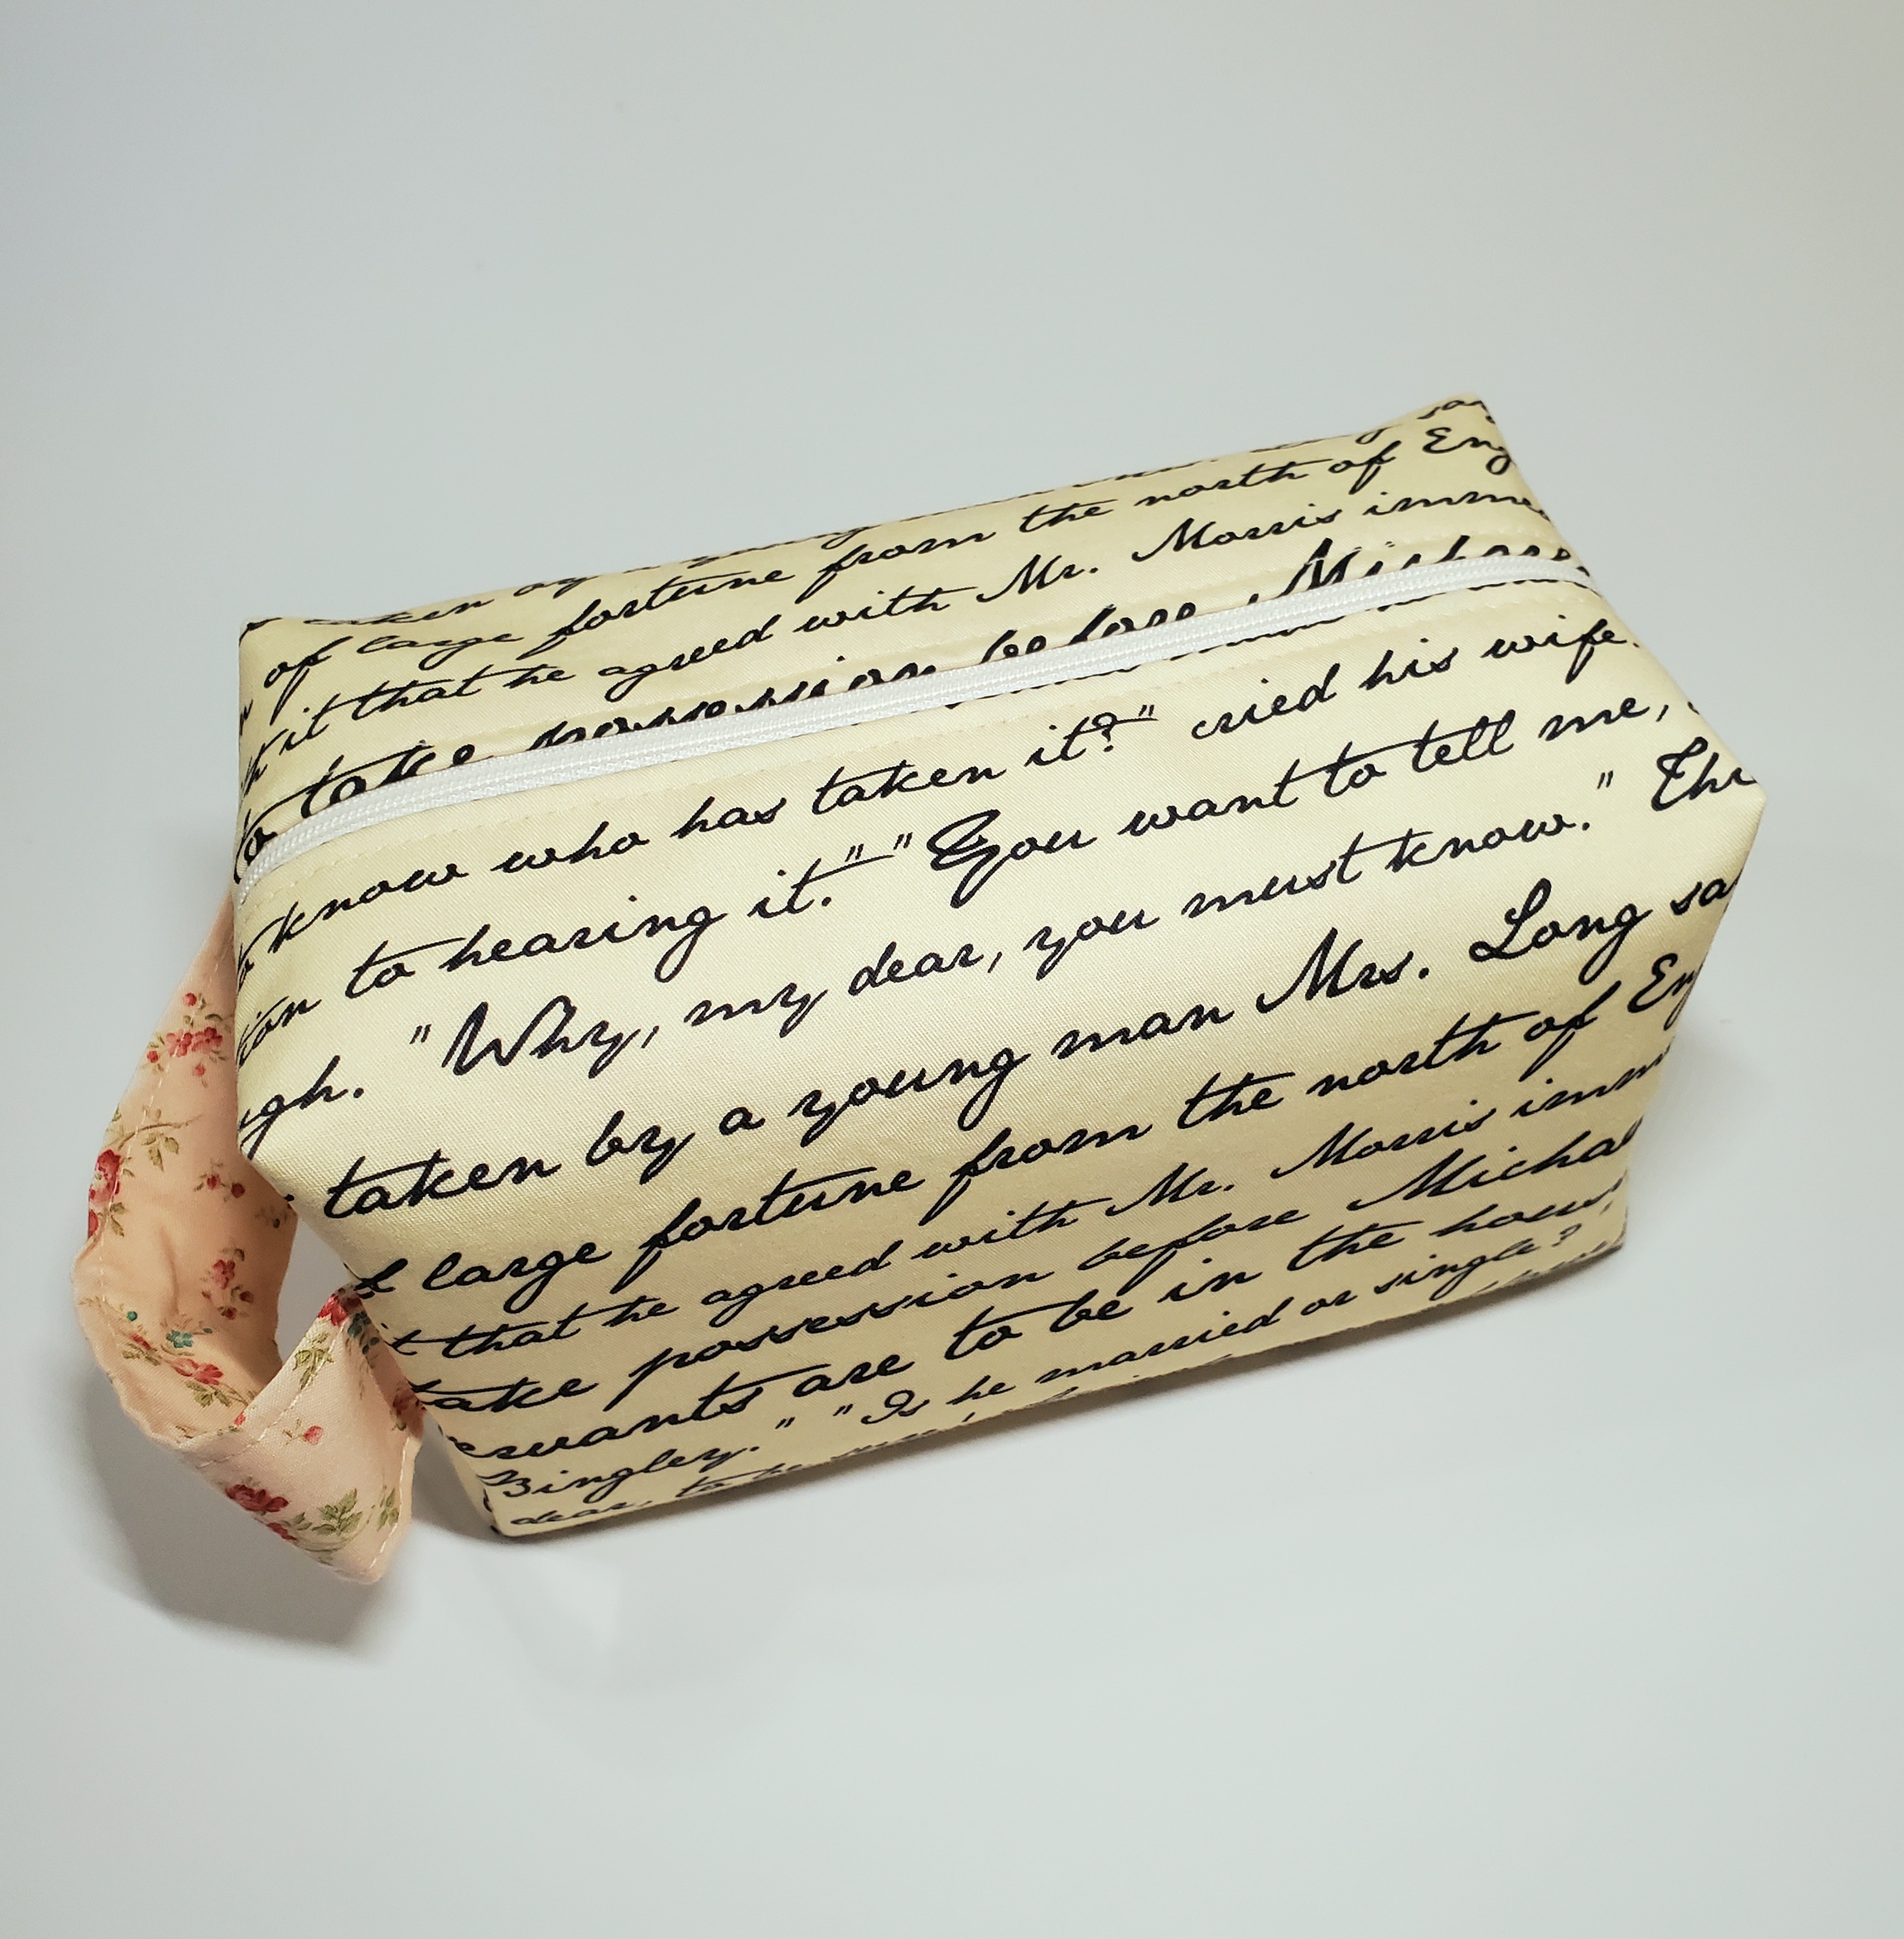 of large fortune from the north of Eng
it that he agreed with Mr. Morris imme
to take possession before Michae
know who has taken it?" cried his wife.
to hearing it." "You want to tell me,
gh. "Why, my dear, you must know." Thi
taken by a young man Mrs. Long sa
large fortune from the north of En
t that he agreed with Mr. Morris imm
take possession before Micha
ervants are to be in the hous
Bingley." "Is he married or single?
dear, to be